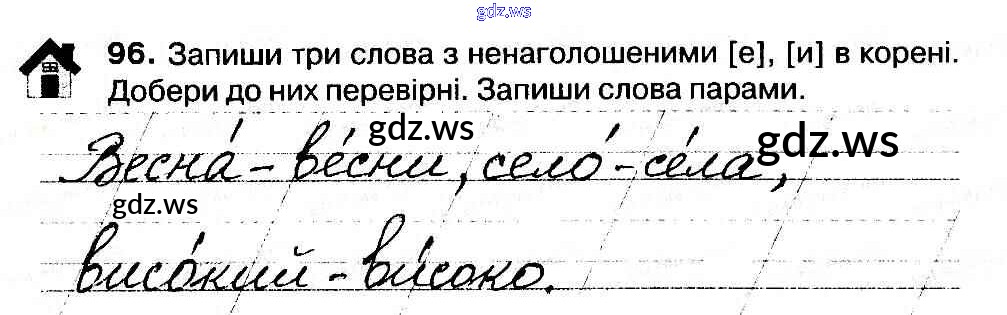 gdz.ws
96. Запиши три слова з ненаголошеними [е], [и] в корені.
Добери до них перевірні. Запиши слова парами.
gdz.ws
gdz.ws
Весна́ – ве́сни, село́ – се́ла,
gdz.ws
висо́кий – ви́соко.